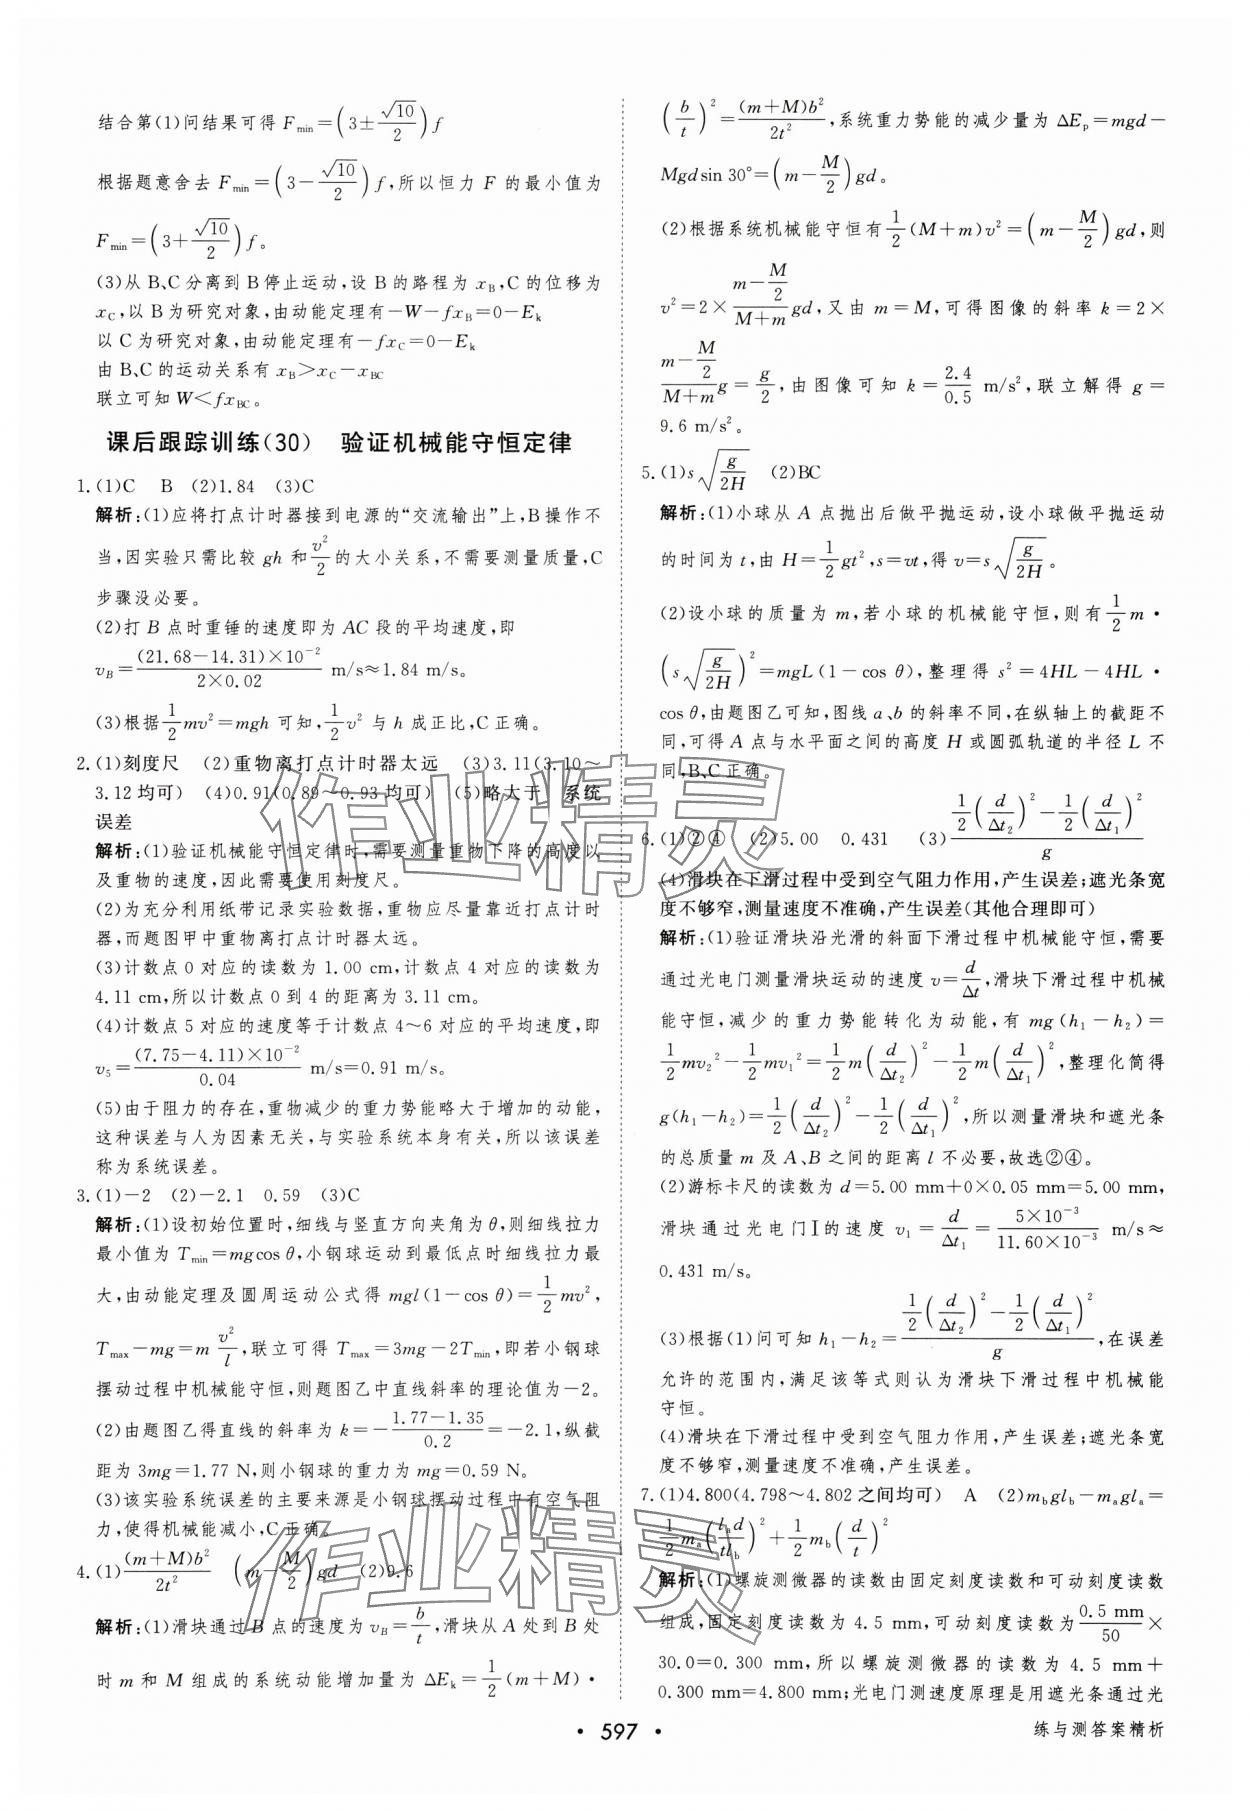 结合第(1)问结果可得 F_min=(3±√10/2)f
根据题意舍去 F_min=(3-√10/2)f,所以恒力 F 的最小值为
F_min=(3+√10/2)f。
(3)从 B、C 分离到 B 停止运动,设 B 的路程为 x_B,C 的位移为
x_C,以 B 为研究对象,由动能定理有-W-fx_B=0-E_k
以 C 为研究对象,由动能定理有-fx_C=0-E_k
由 B、C 的运动关系有 x_B>x_C-x_BC
联立可知 W<fx_BC。
课后跟踪训练(30) 验证机械能守恒定律
1.(1)C B (2)1.84 (3)C
解析:(1)应将打点计时器接到电源的“交流输出”上,B 操作不
当,因实验只需比较 gh 和 v²/2 的大小关系,不需要测量质量,C
步骤没必要。
(2)打 B 点时重锤的速度即为 AC 段的平均速度,即
v_B=(21.68-14.31)×10⁻²/(2×0.02) m/s≈1.84 m/s。
(3)根据 1/2 mv²=mgh 可知,1/2 v² 与 h 成正比,C 正确。
2.(1)刻度尺 (2)重物离打点计时器太远 (3)3.11(3.10~
3.12均可) (4)0.91(0.89~0.93均可) (5)略大于 系统
误差
解析:(1)验证机械能守恒定律时,需要测量重物下降的高度以
及重物的速度,因此需要使用刻度尺。
(2)为充分利用纸带记录实验数据,重物应尽量靠近打点计时
器,而题图甲中重物离打点计时器太远。
(3)计数点 0 对应的读数为 1.00 cm,计数点 4 对应的读数为
4.11 cm,所以计数点 0 到 4 的距离为 3.11 cm。
(4)计数点 5 对应的速度等于计数点 4~6 对应的平均速度,即
v₅=(7.75-4.11)×10⁻²/0.04 m/s=0.91 m/s。
(5)由于阻力的存在,重物减少的重力势能略大于增加的动能,
这种误差与人为因素无关,与实验系统本身有关,所以该误差
称为系统误差。
3.(1)-2 (2)-2.1 0.59 (3)C
解析:(1)设初始位置时,细线与竖直方向夹角为 θ,则细线拉力
最小值为 T_min=mgcos θ,小钢球运动到最低点时细线拉力最
大,由动能定理及圆周运动公式得 mgl(1-cos θ)=1/2 mv²,
T_max-mg=m v²/l,联立可得 T_max=3mg-2T_min,即若小钢球
摆动过程中机械能守恒,则题图乙中直线斜率的理论值为-2。
(2)由题图乙得直线的斜率为 k=-(1.77-1.35)/0.2=-2.1,纵截
距为 3mg=1.77 N,则小钢球的重力为 mg=0.59 N。
(3)该实验系统误差的主要来源是小钢球摆动过程中有空气阻
力,使得机械能减小,C 正确。
4.(1)(m+M)b²/2t² (m-M/2)gd (2)9.6
解析:(1)滑块通过 B 点的速度为 v_B=b/t,滑块从 A 处到 B 处
时 m 和 M 组成的系统动能增加量为 ΔE_k=1/2(m+M)·
(b/t)²=(m+M)b²/2t²,系统重力势能的减少量为 ΔE_p=mgd-
Mgdsin 30°=(m-M/2)gd。
(2)根据系统机械能守恒有 1/2(M+m)v²=(m-M/2)gd,则
v²=2×(m-M/2)/(M+m) gd,又由 m=M,可得图像的斜率 k=2×
(m-M/2)/(M+m) g=g/2,由图像可知 k=2.4/0.5 m/s²,联立解得 g=
9.6 m/s²。
5.(1)s√(g/2H) (2)BC
解析:(1)小球从 A 点抛出后做平抛运动,设小球做平抛运动
的时间为 t,由 H=1/2 gt²,s=vt,得 v=s√(g/2H)。
(2)设小球的质量为 m,若小球的机械能守恒,则有 1/2 m·
(s√(g/2H))²=mgL(1-cos θ),整理得 s²=4HL-4HL·
cos θ,由题图乙可知,图线 a、b 的斜率不同,在纵轴上的截距不
同,可得 A 点与水平面之间的高度 H 或圆弧轨道的半径 L 不
同,B、C 正确。
6.(1)②④ (2)5.00 0.431 (3)(1/2(d/Δt₂)²-1/2(d/Δt₁)²)/g
(4)滑块在下滑过程中受到空气阻力作用,产生误差;遮光条宽
度不够窄,测量速度不准确,产生误差(其他合理即可)
解析:(1)验证滑块沿光滑的斜面下滑过程中机械能守恒,需要
通过光电门测量滑块运动的速度 v=d/Δt,滑块下滑过程中机械
能守恒,减少的重力势能转化为动能,有 mg(h₁-h₂)=
1/2 mv₂²-1/2 mv₁²=1/2 m(d/Δt₂)²-1/2 m(d/Δt₁)²,整理化简得
g(h₁-h₂)=1/2(d/Δt₂)²-1/2(d/Δt₁)²,所以测量滑块和遮光条
的总质量 m 及 A、B 之间的距离 l 不必要,故选②④。
(2)游标卡尺的读数为 d=5.00 mm+0×0.05 mm=5.00 mm,
滑块通过光电门Ⅰ的速度 v₁=d/Δt₁=5×10⁻³/11.60×10⁻³ m/s≈
0.431 m/s。
(3)根据(1)问可知 h₁-h₂=(1/2(d/Δt₂)²-1/2(d/Δt₁)²)/g,在误差
允许的范围内,满足该等式则认为滑块下滑过程中机械能
守恒。
(4)滑块在下滑过程中受到空气阻力作用,产生误差;遮光条宽
度不够窄,测量速度不准确,产生误差。
7.(1)4.800(4.798~4.802之间均可) A (2)m_b gl_b-m_a gl_a=
1/2 m_a(l_a d/tl_b)²+1/2 m_b(d/t)²
解析:(1)螺旋测微器的读数由固定刻度读数和可动刻度读数
组成,固定刻度读数为 4.5 mm,可动刻度读数为 0.5 mm/50 ×
30.0=0.300 mm,所以螺旋测微器的读数为 4.5 mm+
0.300 mm=4.800 mm;光电门测速度原理是用遮光条通过光
• 597 •
练与测答案精析
作业精灵
作业精灵